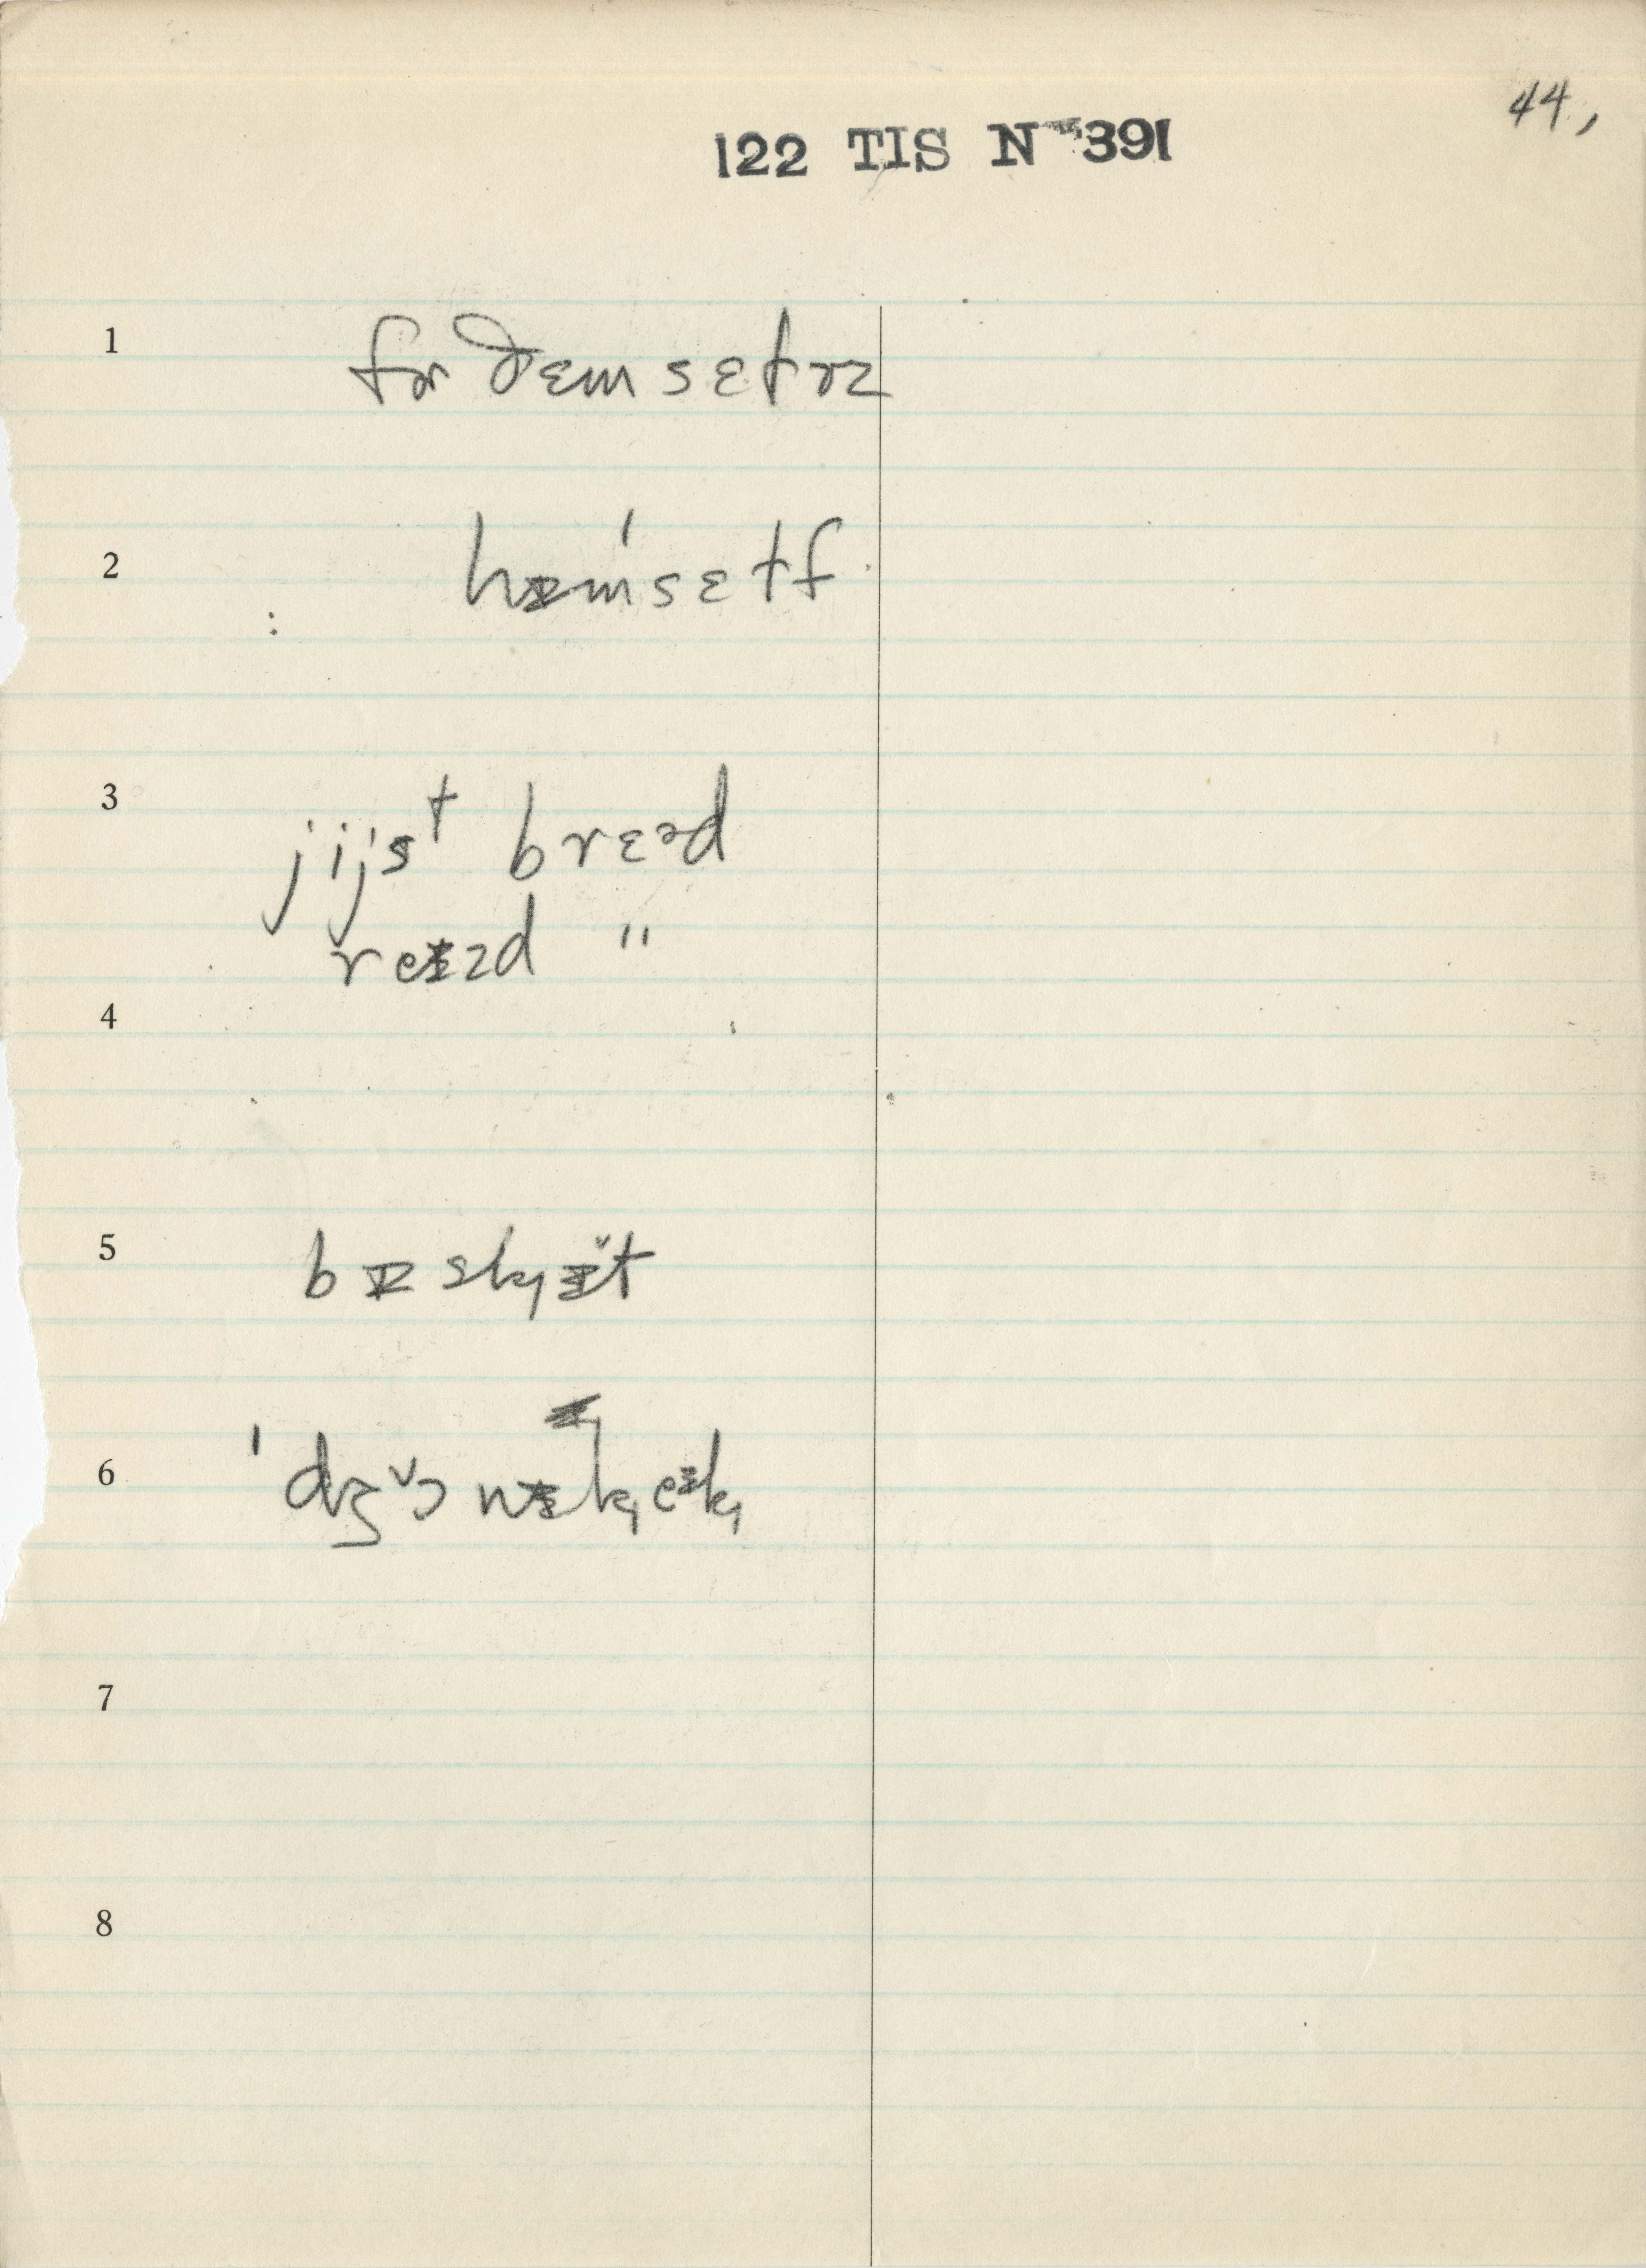 44,
122 TIS N 391
1 fɚ ðɛmsɛɫvz
2 hɪm'sɛɫf
3 jijst brɛəd
reɪzd "
4
5 bɪskɪ̆t
6 'dʒɔ̆nɪkeɪk
7
8